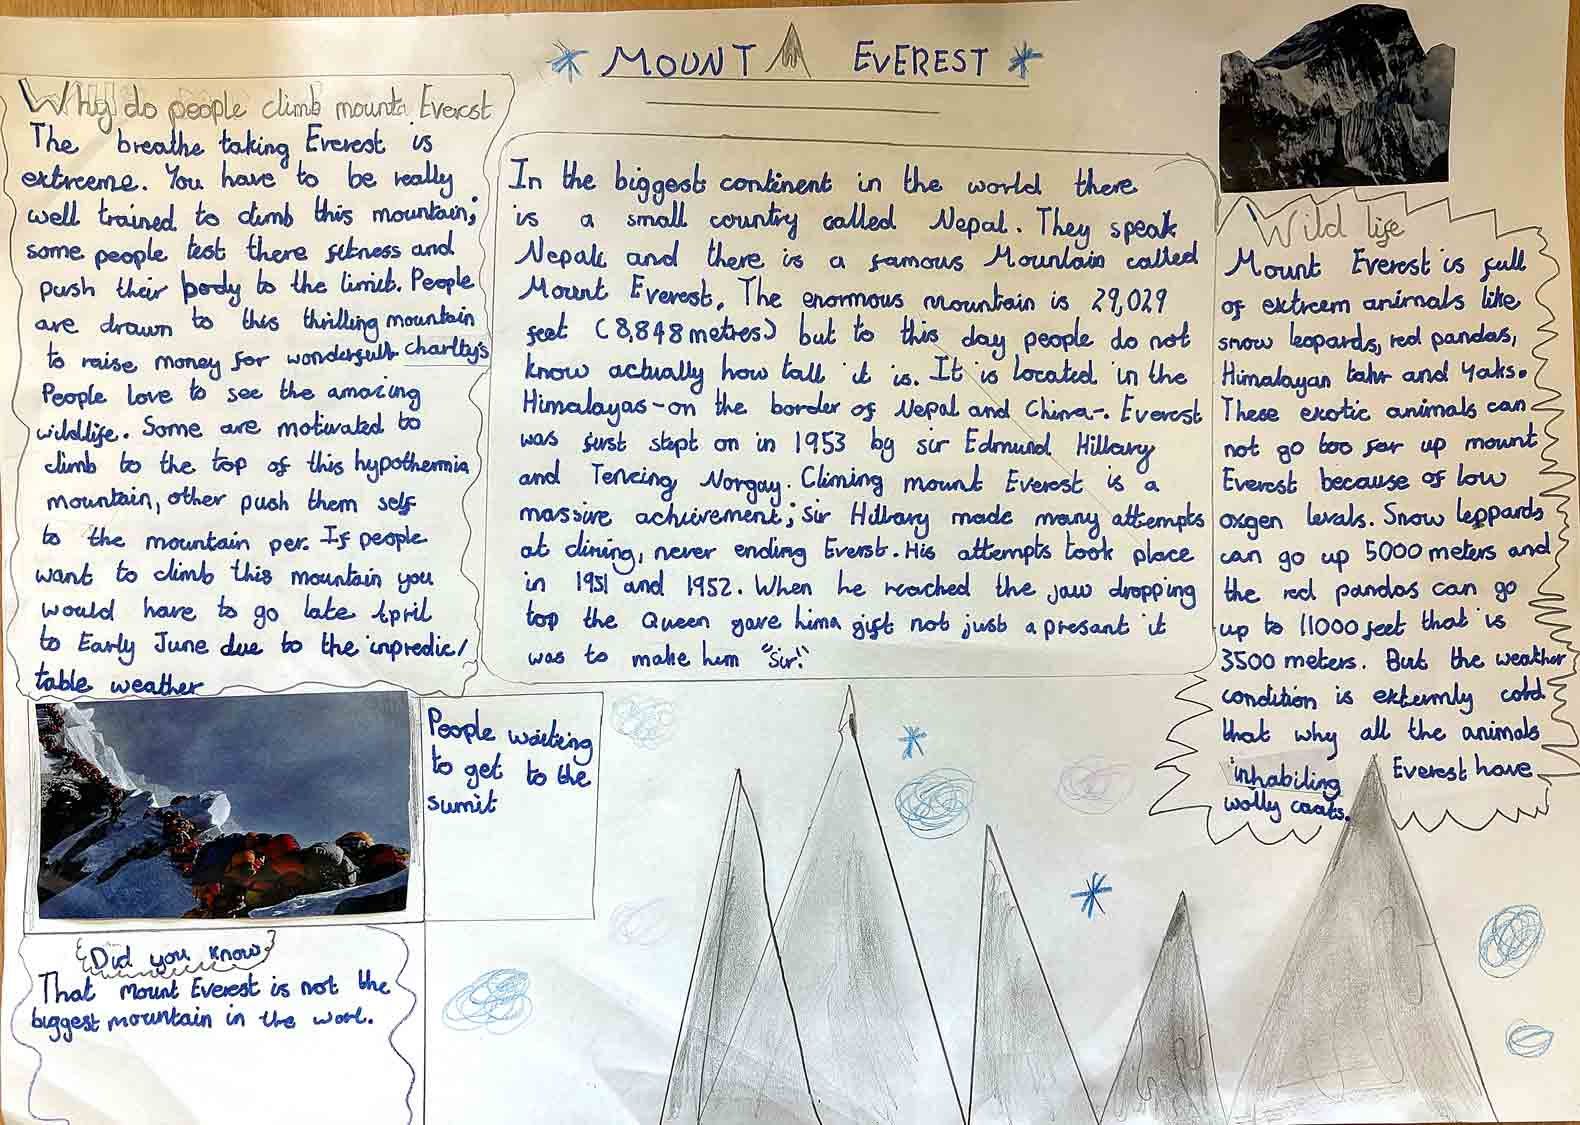 MOUNT EVEREST
Why do people climb mounta Everest
The breathe taking Everest is
extreeme. You have to be really
well trained to climb this mountain;
some people test there fitness and
push their body to the limit. People
are drawn to this thrilling mountain
to raise money for wonderfull charity's
People love to see the amazing
wildlife. Some are motivated to
climb to the top of this hypothermia
mountain, other push them self
to the mountain per. If people
want to climb this mountain you
would have to go late April
to Early June due to the inpredic/
table weather
In the biggest continent in the world there
is a small country called Nepal. They speak
Nepali and there is a famous Mountain called
Mount Everest. The enormous mountain is 29,029
feet (8,848 metres) but to this day people do not
know actually how tall it is. It is located in the
Himalayas-on the border of Nepal and China-. Everest
was first stept on in 1953 by sir Edmund Hillary
and Tenzing Norgay. Climing mount Everest is a
massive achievement; sir Hillary made many attempts
at climing, never ending Everst. His attempts took place
in 1951 and 1952. When he reached the jaw dropping
top the Queen gave hima gift not just a presant it
was to make him "Sir".
Wild life
Mount Everest is full
of extreem animals like
snow leopards, red pandas,
Himalayan tahr and yaks.
These exotic animals can
not go too far up mount
Everest because of low
oxgen levals. Snow leppards
can go up 5000 meters and
the red pandas can go
up to 11000 feet that is
3500 meters. But the weather
condition is extermly cold
that why all the animals
inhabiling Everest have
wolly coats.
People waiting
to get to the
sumit
Did you know
That mount Everest is not the
biggest mountain in the worl.